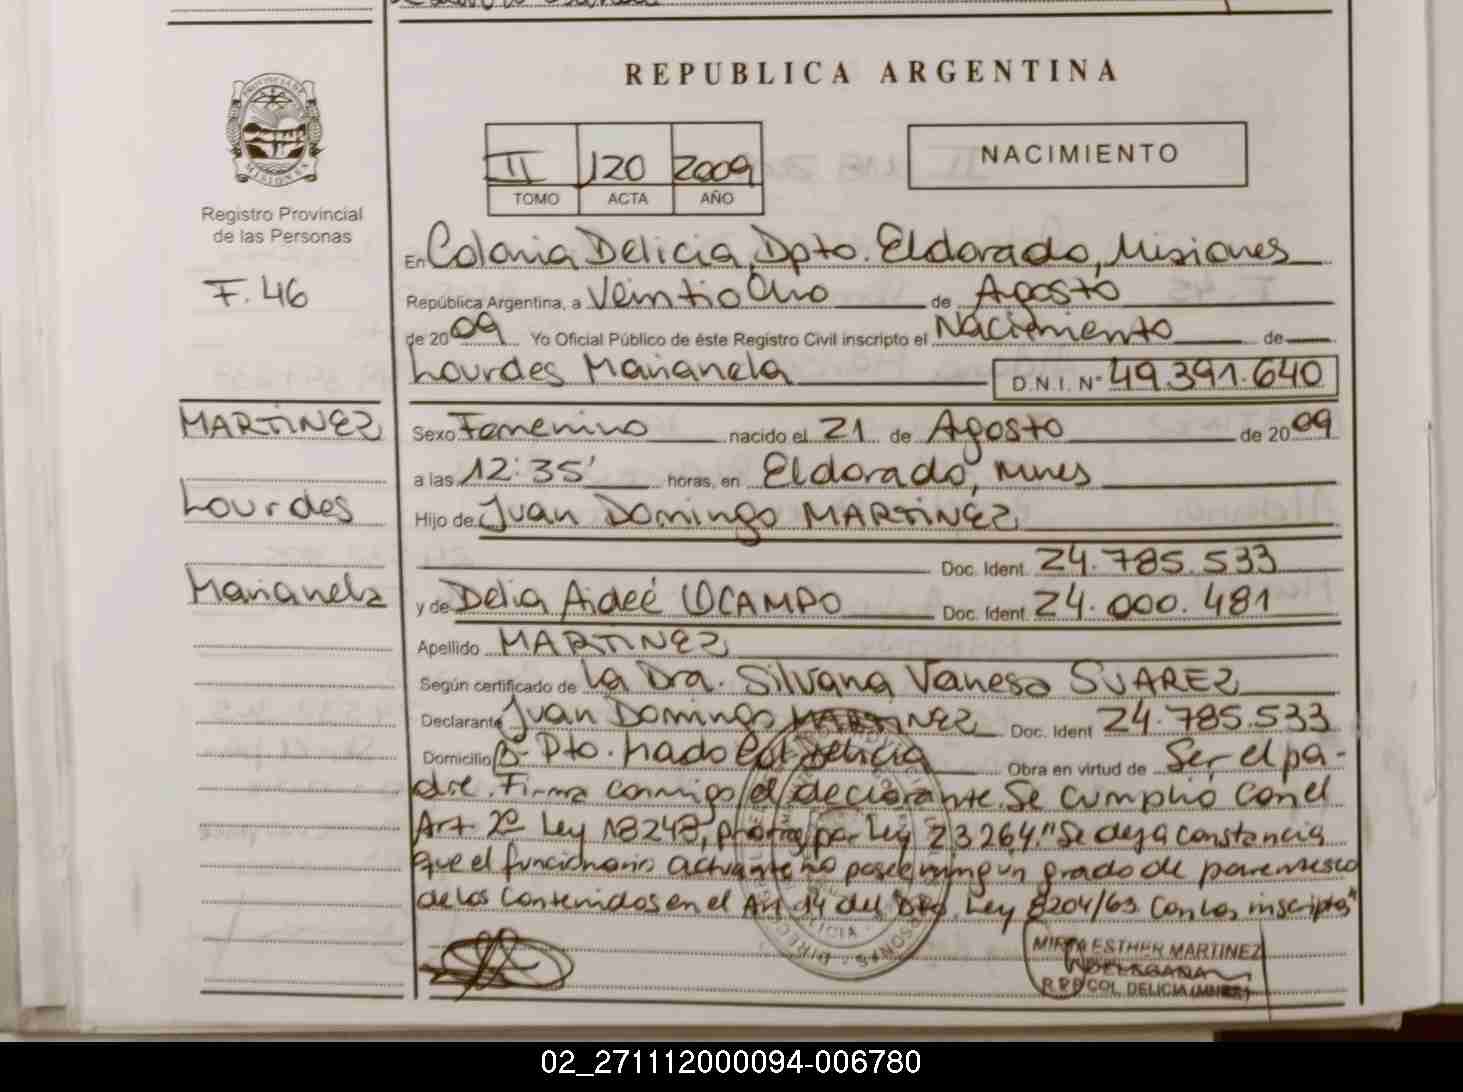 REPUBLICA ARGENTINA
II 120 2009
TOMO ACTA AÑO
NACIMIENTO
PROVINCIA DE MISIONES
Registro Provincial
de las Personas
F. 46
MARTINEZ
Lourdes
Marianela
En Colonia Delicia, Dpto. Eldorado, Misiones
República Argentina, a Veintiocho de Agosto
de 2009 Yo Oficial Público de éste Registro Civil inscripto el Nacimiento de
Lourdes Marianela D.N.I. Nº 49.391.640
Sexo Femenino nacido el 21 de Agosto de 2009
a las 12:35' horas, en Eldorado, Mnes
Hijo de Juan Domingo MARTINEZ
Doc. Ident. 24.785.533
y de Delia Aideé OCAMPO Doc. Ident. 24.000.481
Apellido MARTINEZ
Según certificado de La Dra. Silvana Vanesa SUAREZ
Declarante Juan Domingo MARTINEZ Doc. Ident 24.785.533
Domicilio Bº Pto. Mado Col Delicia Obra en virtud de Ser el pa-
dre. Firma conmigo el declarante. Se cumplió con el
Art 2º Ley 18248, prorrog por Ley 23.264. "Se deja constancia
que el funcionario actuante no posee ningún grado de parentesco
de los contenidos en el Art 14 del Dto. Ley 8204/63 con los inscriptos"
MIRTA ESTHER MARTINEZ
DELEGADA
R.P.P COL. DELICIA (MNES)
02_271112000094-006780